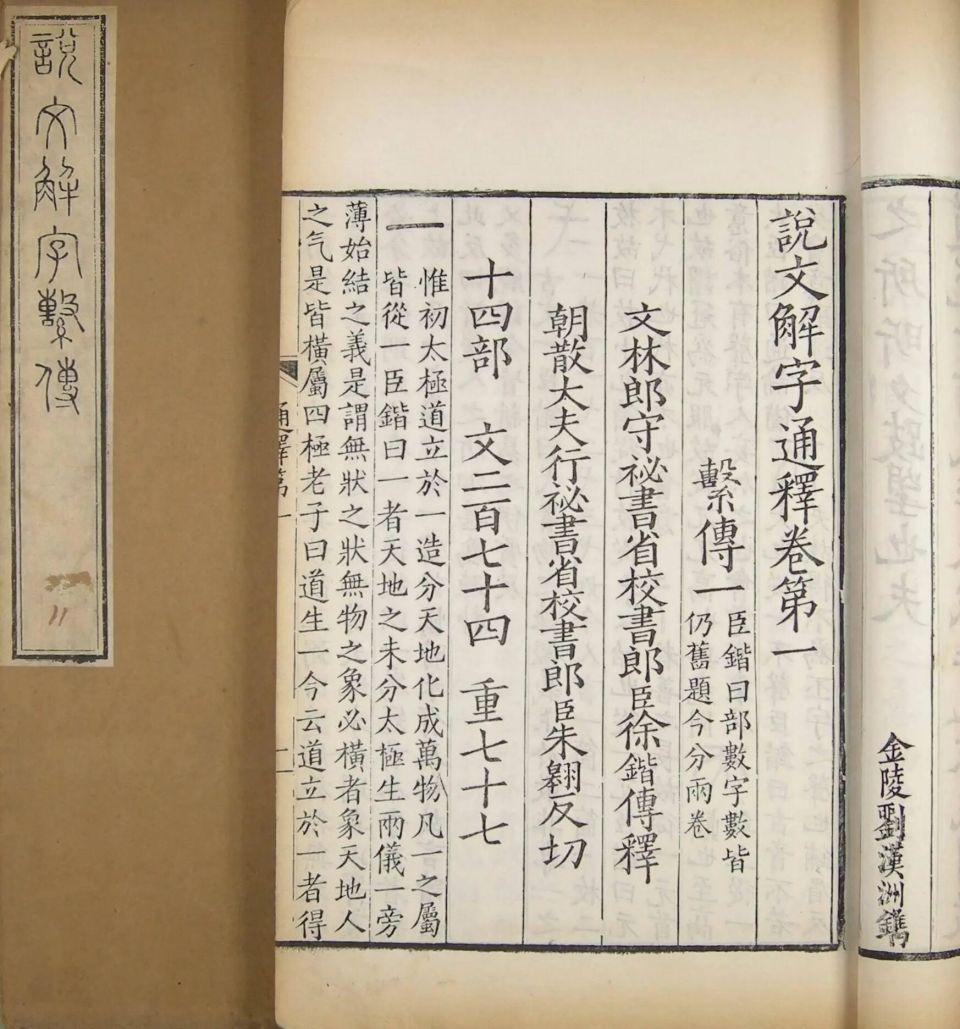 說文解字繫傳
11
說文解字通釋卷第一
繫傳一 臣鍇曰部數字數皆
仍舊題今分兩卷
文林郎守祕書省校書郎臣徐鍇傳釋
朝散大夫行祕書省校書郎臣朱翱反切
十四部 文二百七十四 重七十七
一 惟初太極道立於一造分天地化成萬物凡一之屬
皆從一臣鍇曰一者天地之未分太極生兩儀一旁
薄始結之義是謂無狀之狀無物之象必橫者象天地人
之气是皆橫屬四極老子曰道生一今云道立於一者得
通釋第一
二
金陵劉漢洲鐫